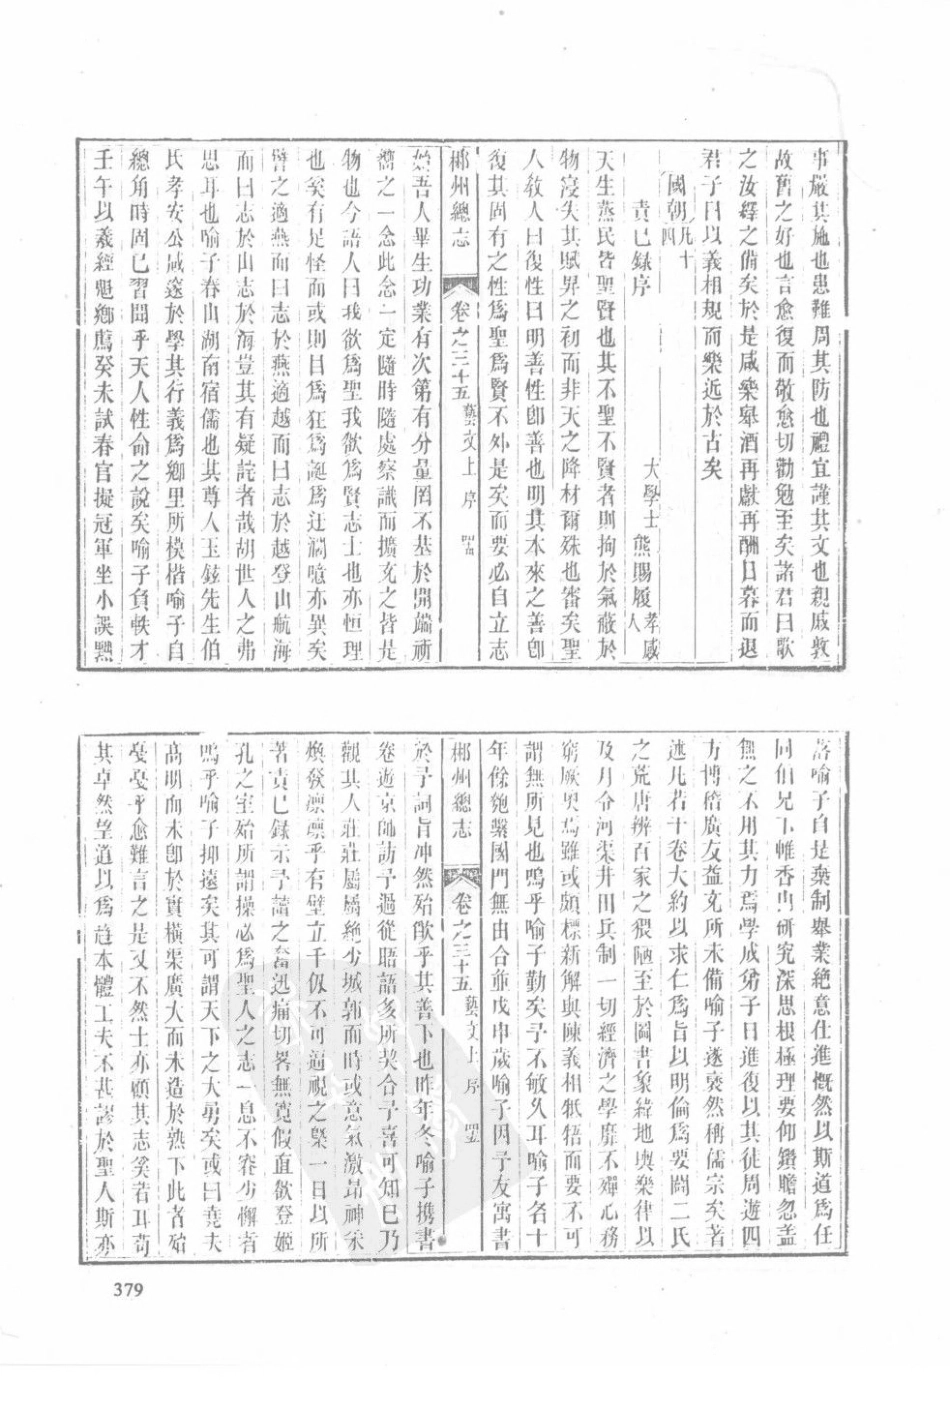 事嚴其施也患難周其防也禮宜謹其文也親戚敦
故舊之好也言愈復而敬愈切勸勉至矣諸君曰歌
之汝繹之備矣於是咸樂舉酒再獻再酬日暮而退
君子曰以義相規而樂近於古矣
國朝凡十四
責已錄序
大學士 熊賜履 孝感人
天生蒸民皆聖賢也其不聖不賢者則拘於氣蔽於
物寖失其賦畀之初而非天之降材爾殊也審矣聖
人敎人曰復性曰明善性卽善也明其本來之善卽
復其固有之性爲聖爲賢不外是矣而要必自立志
郴州總志 卷之三十五 藝文上 序
始吾人畢生功業有次第有分量罔不基於開端祈
嚮之一念此念一定隨時隨處察識而擴充之皆是
物也今語人曰我欲爲聖我欲爲賢志士也亦恒理
也矣有足怪而或則目爲狂爲誕爲迂濶噫亦異矣
譬之適燕而曰志於燕適越而曰志於越登山航海
而曰志於山志於海豈其有疑詫者哉胡世人之弗
思耳也喻子春山湖南宿儒也其尊人玉鉉先生伯
氏孝安公咸邃於學其行義爲鄉里所模楷喻子自
總角時固已習聞乎天人性命之說矣喻子負軼才
壬午以羲經魁鄉薦癸未試春官擬冠軍坐小誤黜
落喻子自是棄制舉業絶意仕進慨然以斯道爲任
同伯兄下帷香山研究深思根極理要仰鑽瞻忽蓋
無之不用其力焉學成弟子日進復以其徒周遊四
方博稽廣友益充所未備喻子遂褎然稱儒宗矣著
述凡若干卷大約以求仁爲旨以明倫爲要闢二氏
之荒唐辨百家之猥陋至於圖書象緯地輿樂律以
及月令河渠井田兵制一切經濟之學靡不殫心務
窮厥奥焉雖或頗標新解與陳義相牴牾而要不可
謂無所見也嗚乎喻子勤矣予不敏久耳喻子名十
年餘匏繫國門無由合並戊申歲喻子因予友寓書
郴州總志 卷之三十五 藝文上 序
於予詞旨冲然殆歉乎其善下也昨年冬喻子携書
卷遊京師訪予過從晤語多所契合予喜可知已乃
觀其人莊莊屬屬絶少城郭而時或意氣激昂神采
煥發凛凛乎有壁立千仭不可逼視之槩一日以所
著責已錄示予讀之奮迅痛切畧無寬假直欲登姬
孔之室始所謂操必爲聖人之志一息不容少懈者
嗚乎喻子抑遠矣其可謂天下之大勇矣或曰堯夫
高明而未卽於實橫渠廣大而未造於熟下此者殆
戞戞乎愈難言之是又不然士亦顧其志奚若耳苟
其卓然望道以爲趨本體工夫不甚謬於聖人斯亦
379